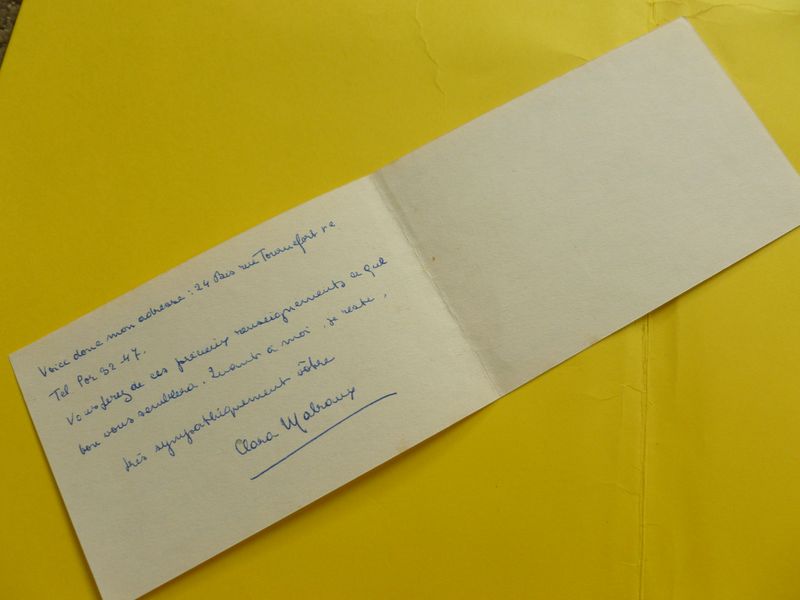 Voici donc mon adresse : 24 Bis rue Tournefort Ve
Tel. Por 32 47.
Vous ferez de ces précieux renseignements ce que
bon vous semblera. Quant à moi, je reste,
très sympathiquement vôtre
Clara Malraux